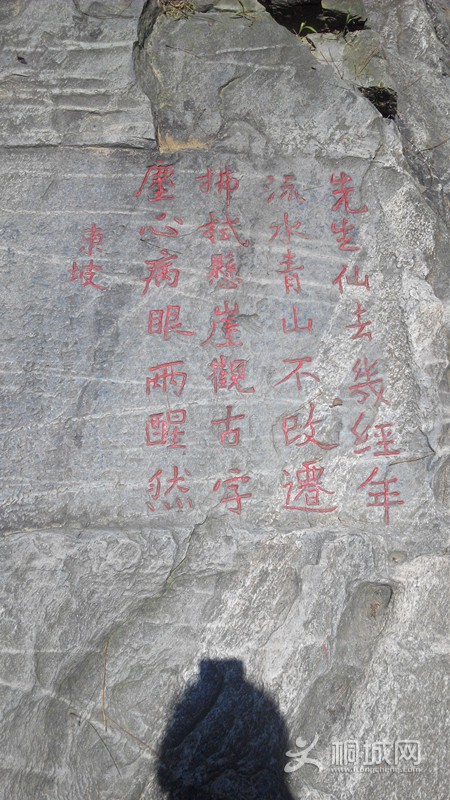 先生仙去幾經年
流水青山不改遷
拂拭懸崖觀古字
塵心病眼兩醒然
東坡
桐城网
itongcheng.com